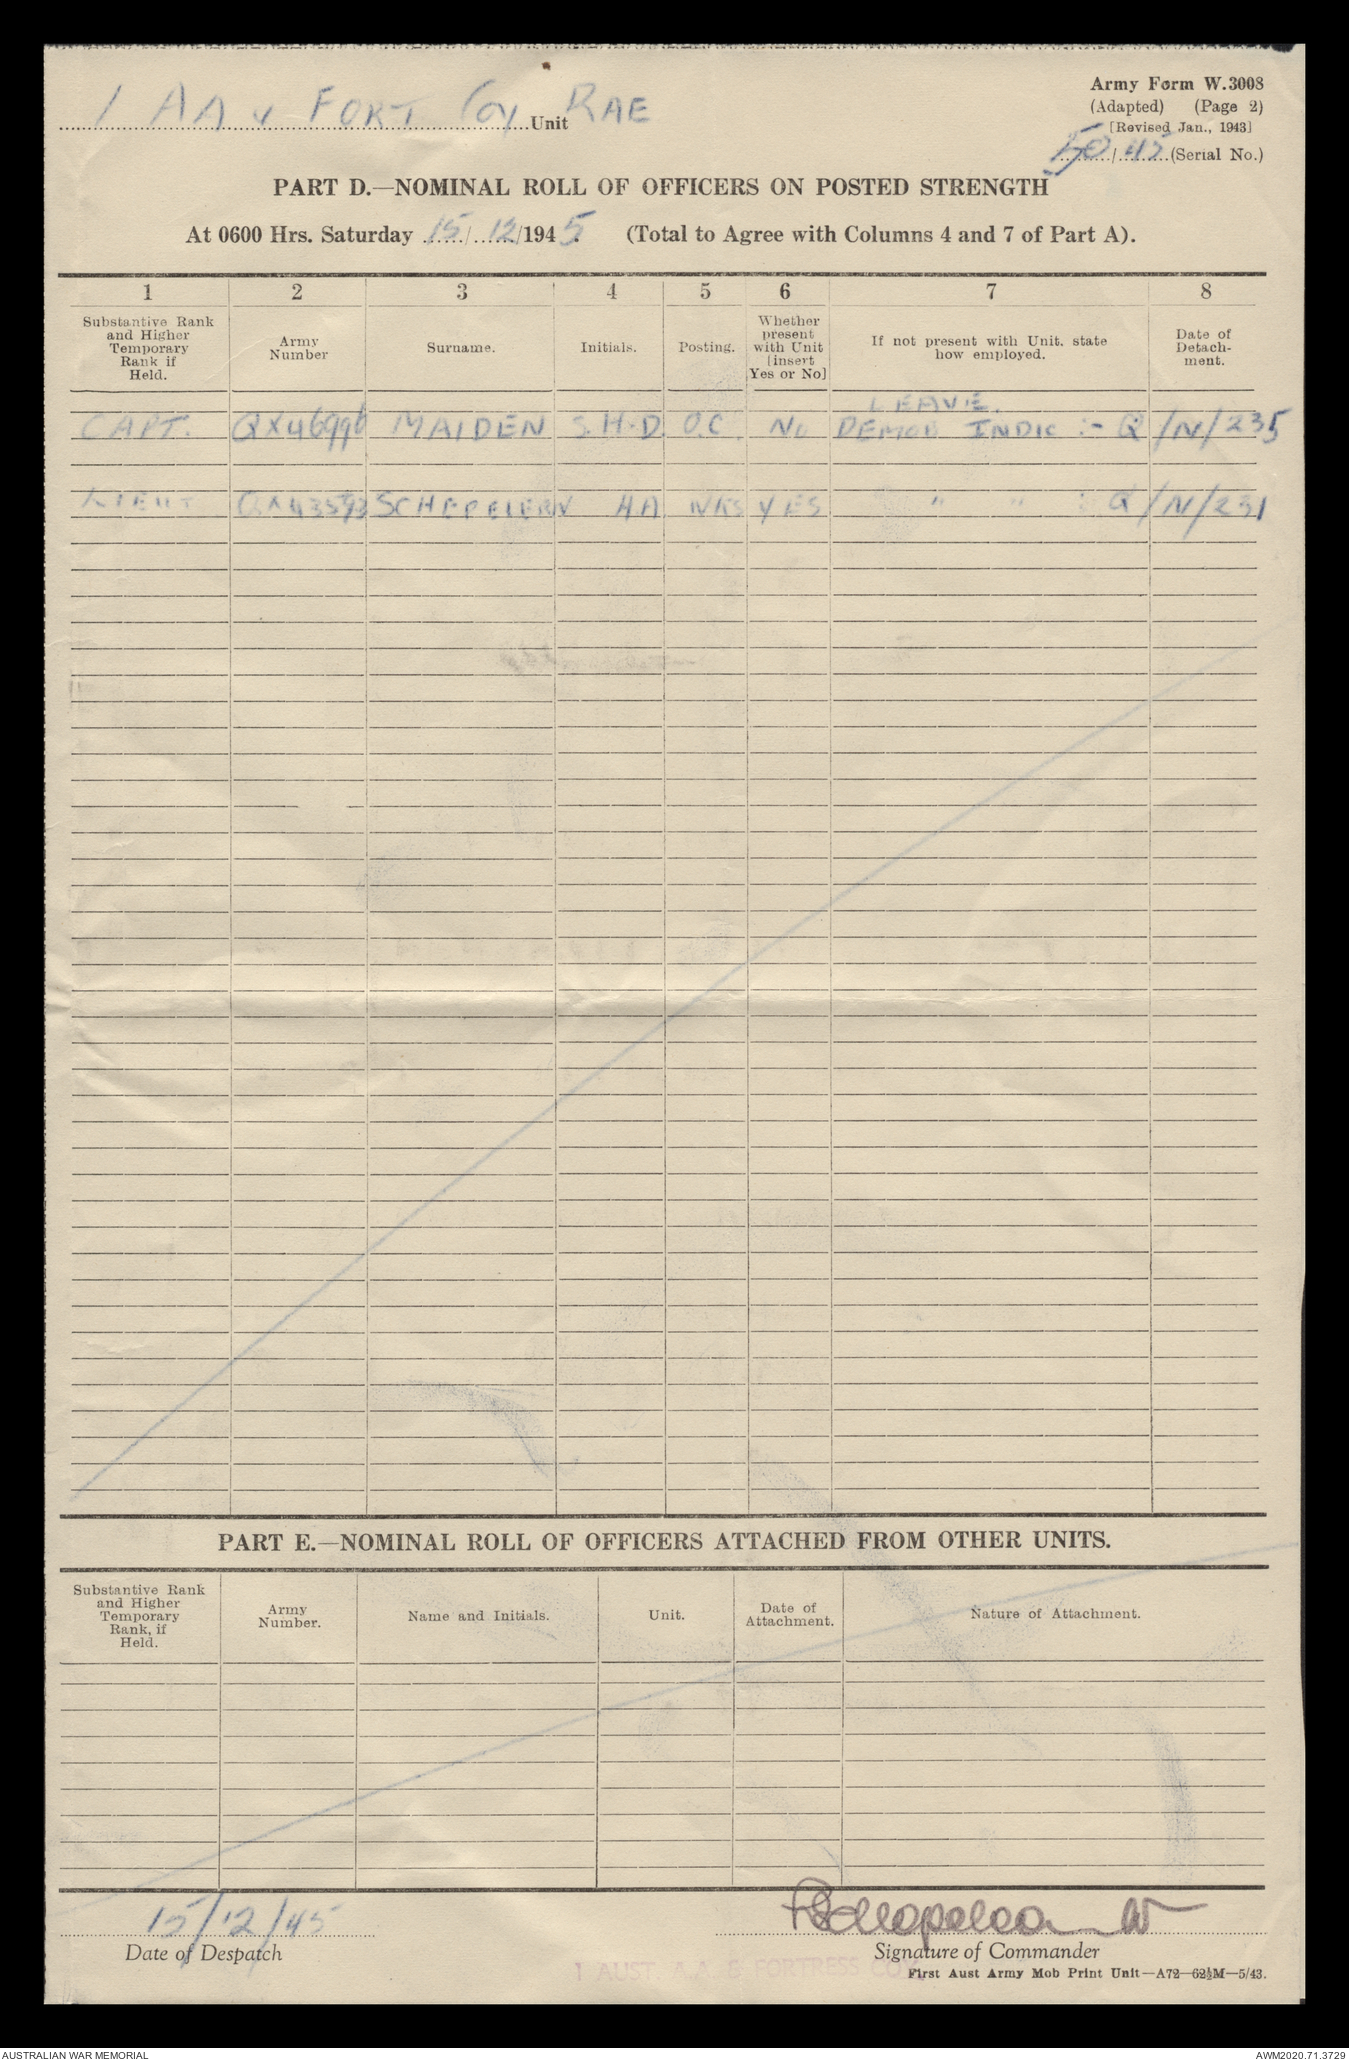 1 AA & FORT Coy RAE
Unit
Army Form W.3008
(Adapted) (Page 2)
[Revised Jan., 1943]
50/45 (Serial No.)
PART D.—NOMINAL ROLL OF OFFICERS ON POSTED STRENGTH
At 0600 Hrs. Saturday 15/12/1945. (Total to Agree with Columns 4 and 7 of Part A).
1 2 3 4 5 6 7 8
Substantive Rank and Higher Temporary Rank if Held.
Army Number
Surname.
Initials.
Posting.
Whether present with Unit [insert Yes or No]
If not present with Unit. state how employed.
Date of Detach-ment.
LEAVE.
CAPT. QX46996 MAIDEN S.H.D. O.C. No DEMOB INDIC :- Q/N/235
LIEUT QX43593 SCHEPELERN HA WKS YES " " : Q/N/231
PART E.—NOMINAL ROLL OF OFFICERS ATTACHED FROM OTHER UNITS.
Substantive Rank and Higher Temporary Rank, if Held.
Army Number.
Name and Initials.
Unit.
Date of Attachment.
Nature of Attachment.
15/12/45
Date of Despatch
Signature of Commander
1 AUST. A.A. & FORTRESS COY.
First Aust Army Mob Print Unit—A72—62½M—5/43.
AUSTRALIAN WAR MEMORIAL
AWM2020.71.3729